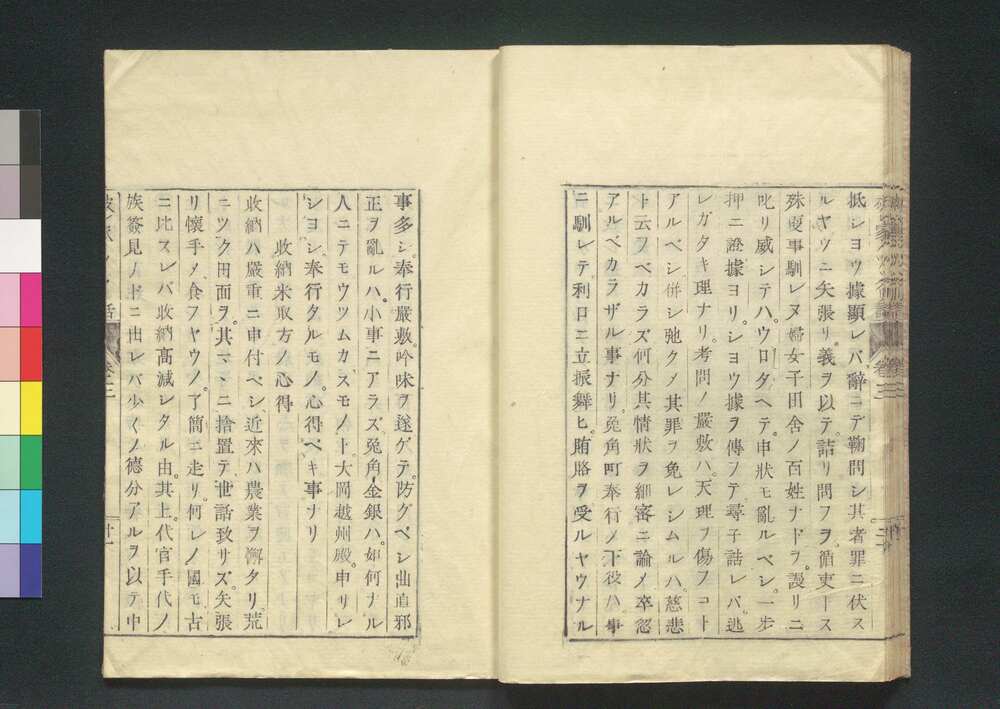 抵シヨウ據顯レバ辭ニテ鞠問シ其者罪ニ伏ス
ルヤウニ矢張リ。義ヲ以テ。詰リ問フヲ。循吏トス
殊更事馴レヌ婦女子田舍ノ百姓ナドヲ。謾リニ
叱リ威シテハ。ウロタヘテ。申狀モ亂ルベシ。一步
押ニ證據ヨリ。シヨウ據ヲ傳フテ尋子詰レバ。逃
レガタキ理ナリ。考問ノ嚴敷ハ。天理ヲ傷フコト
アルベシ併シ弛クメ其罪ヲ免レシムルハ慈悲
ト云フベカラズ何分其情狀ヲ細審ニ論メ卒忽
アルベカラザル事ナリ。兎角町奉行ノ下役ハ。事
ニ馴レテ利口ニ立振舞ヒ。賄賂ヲ受ルヤウナル
事多シ。奉行嚴敷。吟味ヲ遂ゲテ。防グベシ曲直邪
正ヲ亂ルハ。小事ニアラズ。兎角金銀ハ。如何ナル
人ニテモウツムカスモノト。大岡越州殿。申サレ
シヨシ。奉行タルモノ。心得ベキ事ナリ
收納米取方ノ心得
收納ハ嚴重ニ申付ベシ近來ハ農業ヲ懈タリ。荒
ニツク田面ヲ。其マヽニ捨置テ。世話致サズ。矢張
リ懷手メ。食フヤウノ。了簡ニ走リ。何レノ國モ古
ニ比スレバ收納高減レタル由。其上。代官手代ノ
族發見ノトニ出レバ少〱ノ德分アルヲ以テ中
卷三
十一
卷三